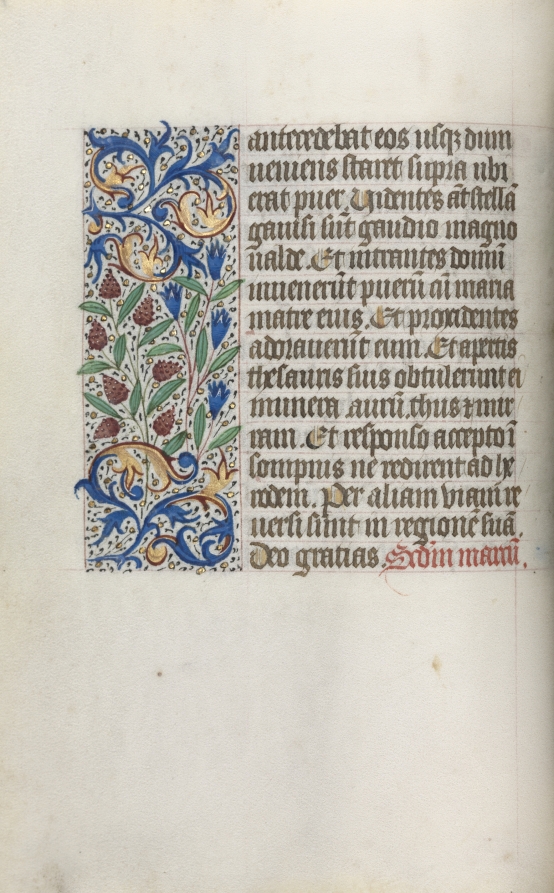 antecedebat eos usqꝫ dum
ueniens staret supra ubi
erat puer. Uidentes āt stellā
gauisi sūt gaudio magno
ualde. Et intrantes domū
inuenerūt puerū cū maria
matre eius. Et procidentes
adorauerūt eum. Et apertis
thesauris suis obtulerunt ei
munera aurū. thus ⁊ mir
ram. Et responso accepto ī
sompnis ne redirent ad he
rodem. Per aliam viam re
uersi sunt in regionē suā.
Deo gratias. Scdm marcū.